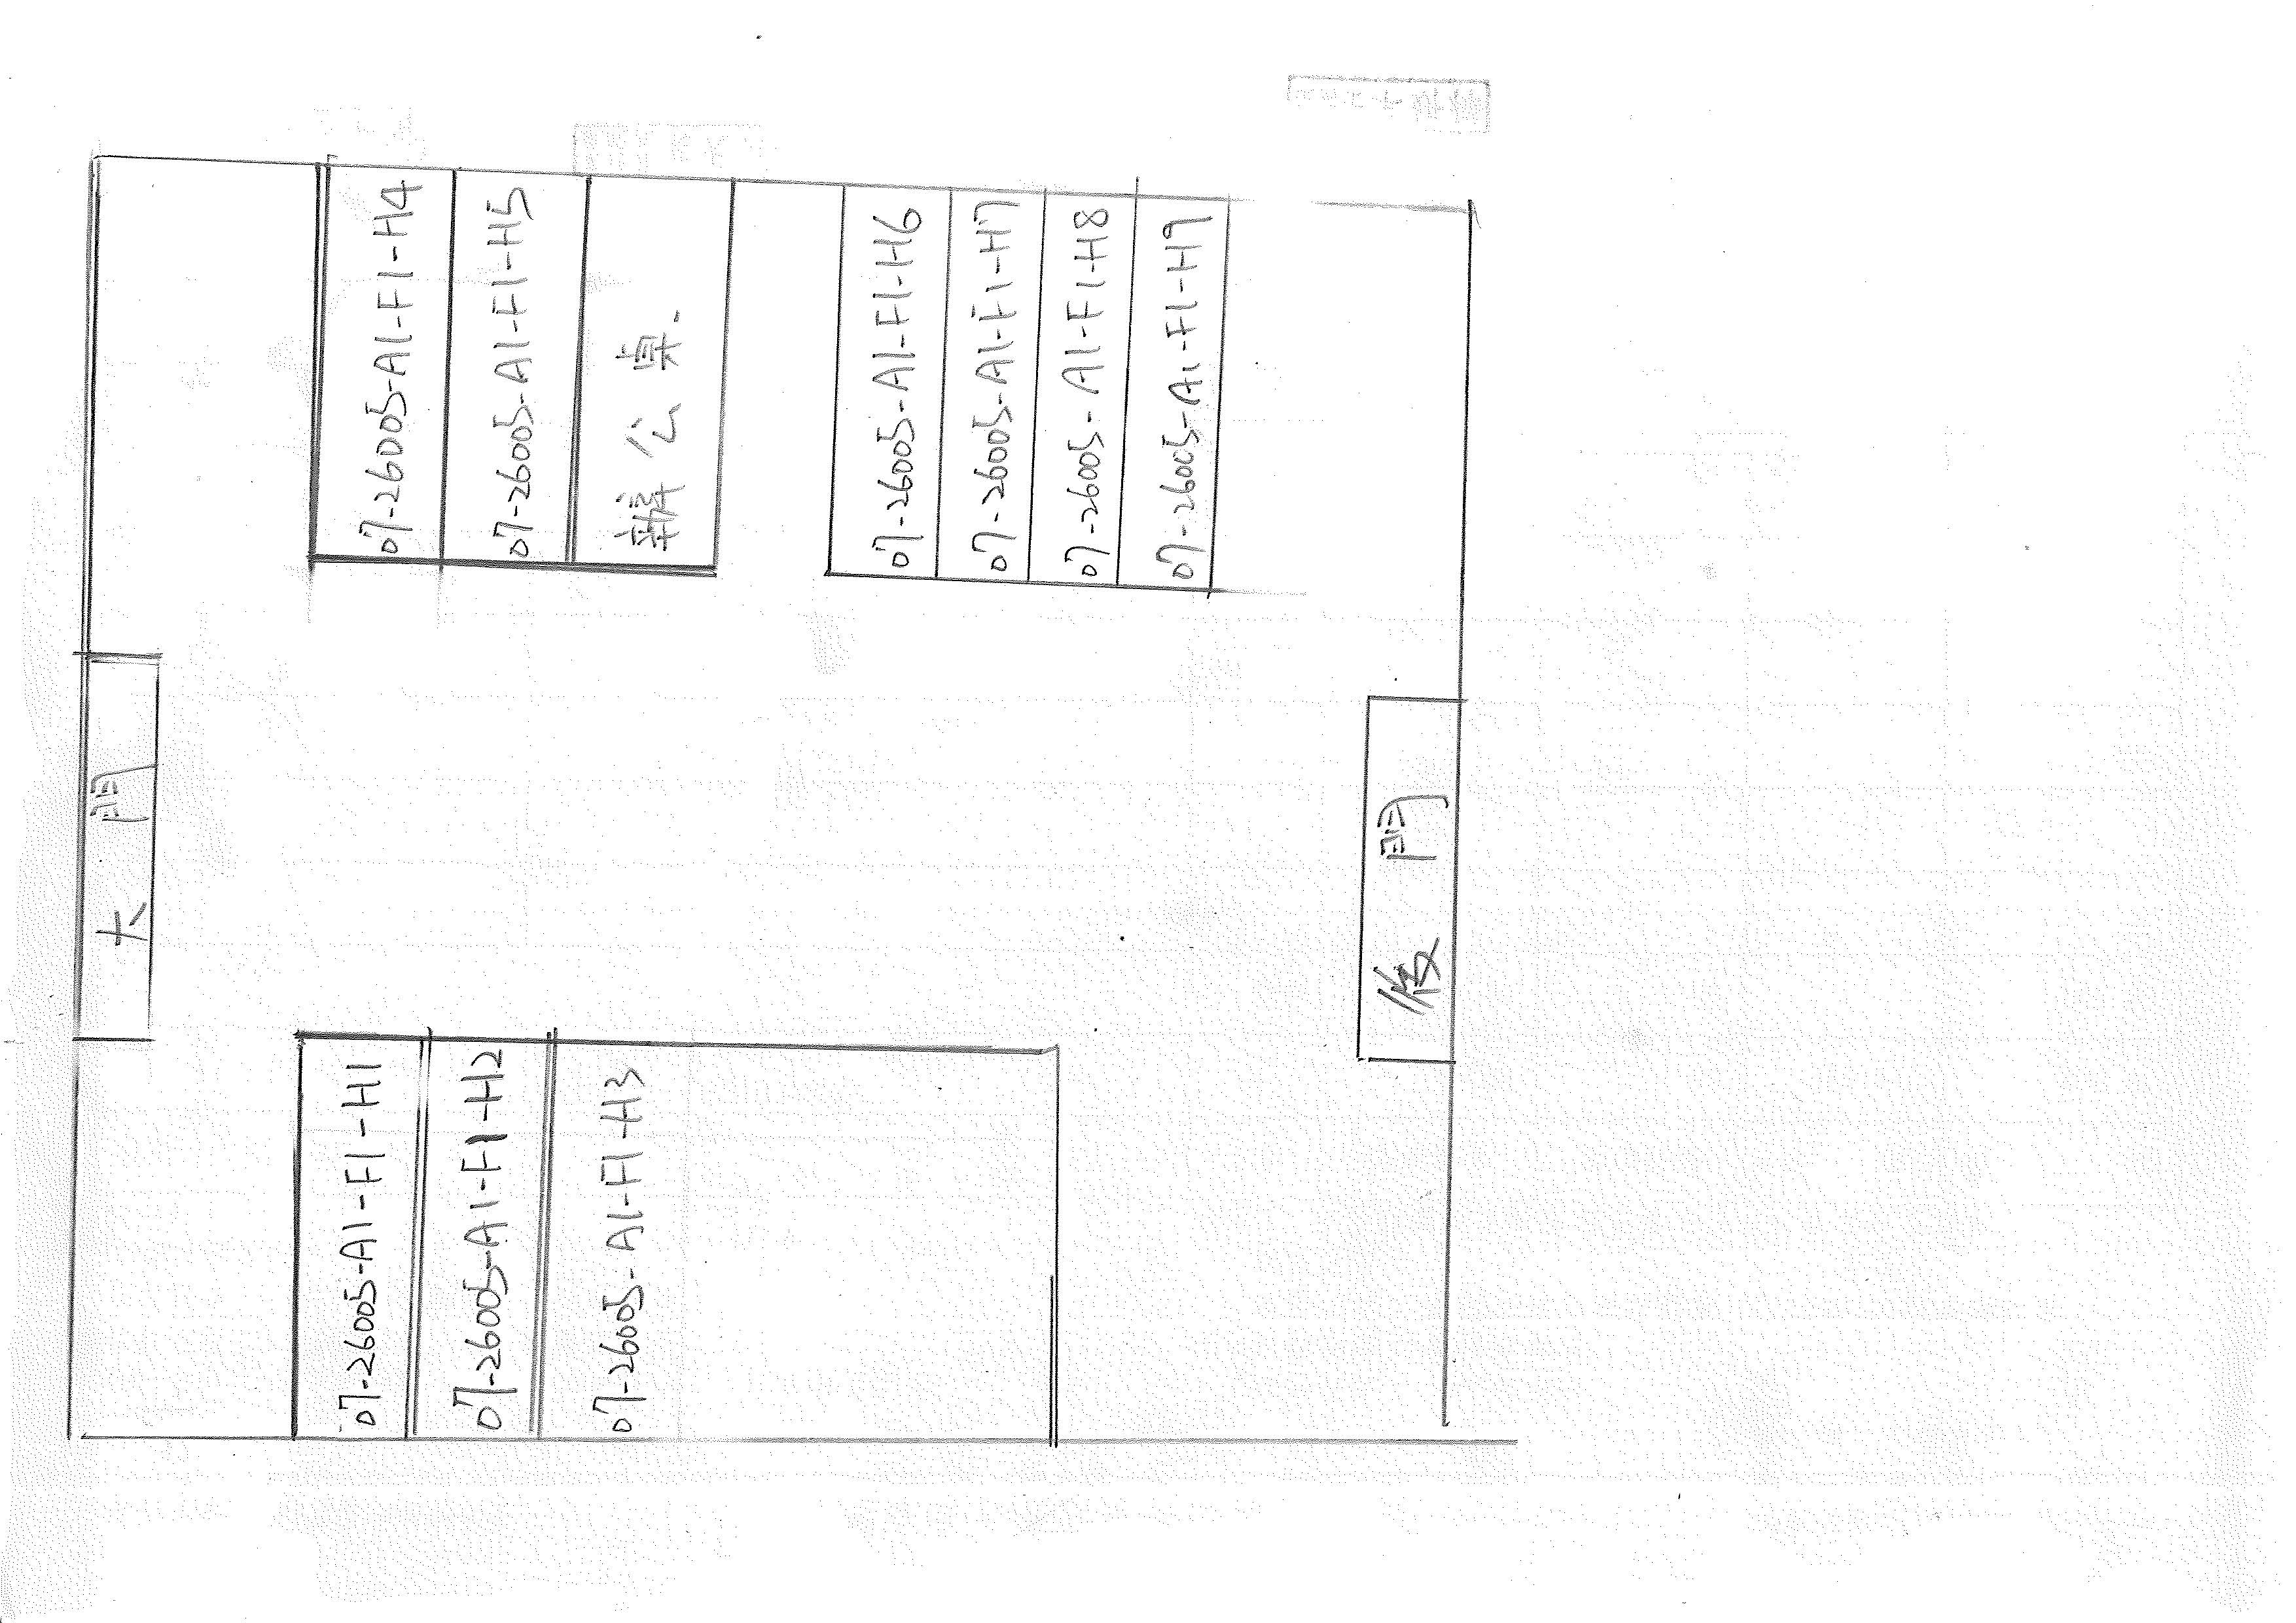 大門
07-26005-A1-F1-H1
07-26005-A1-F1-H2
07-26005-A1-F1-H3
07-26005-A1-F1-H4
07-26005-A1-F1-H5
辦公桌.
07-26005-A1-F1-H6
07-26005-A1-F1-H7
07-26005-A1-F1-H8
07-26005-A1-F1-H9
後門